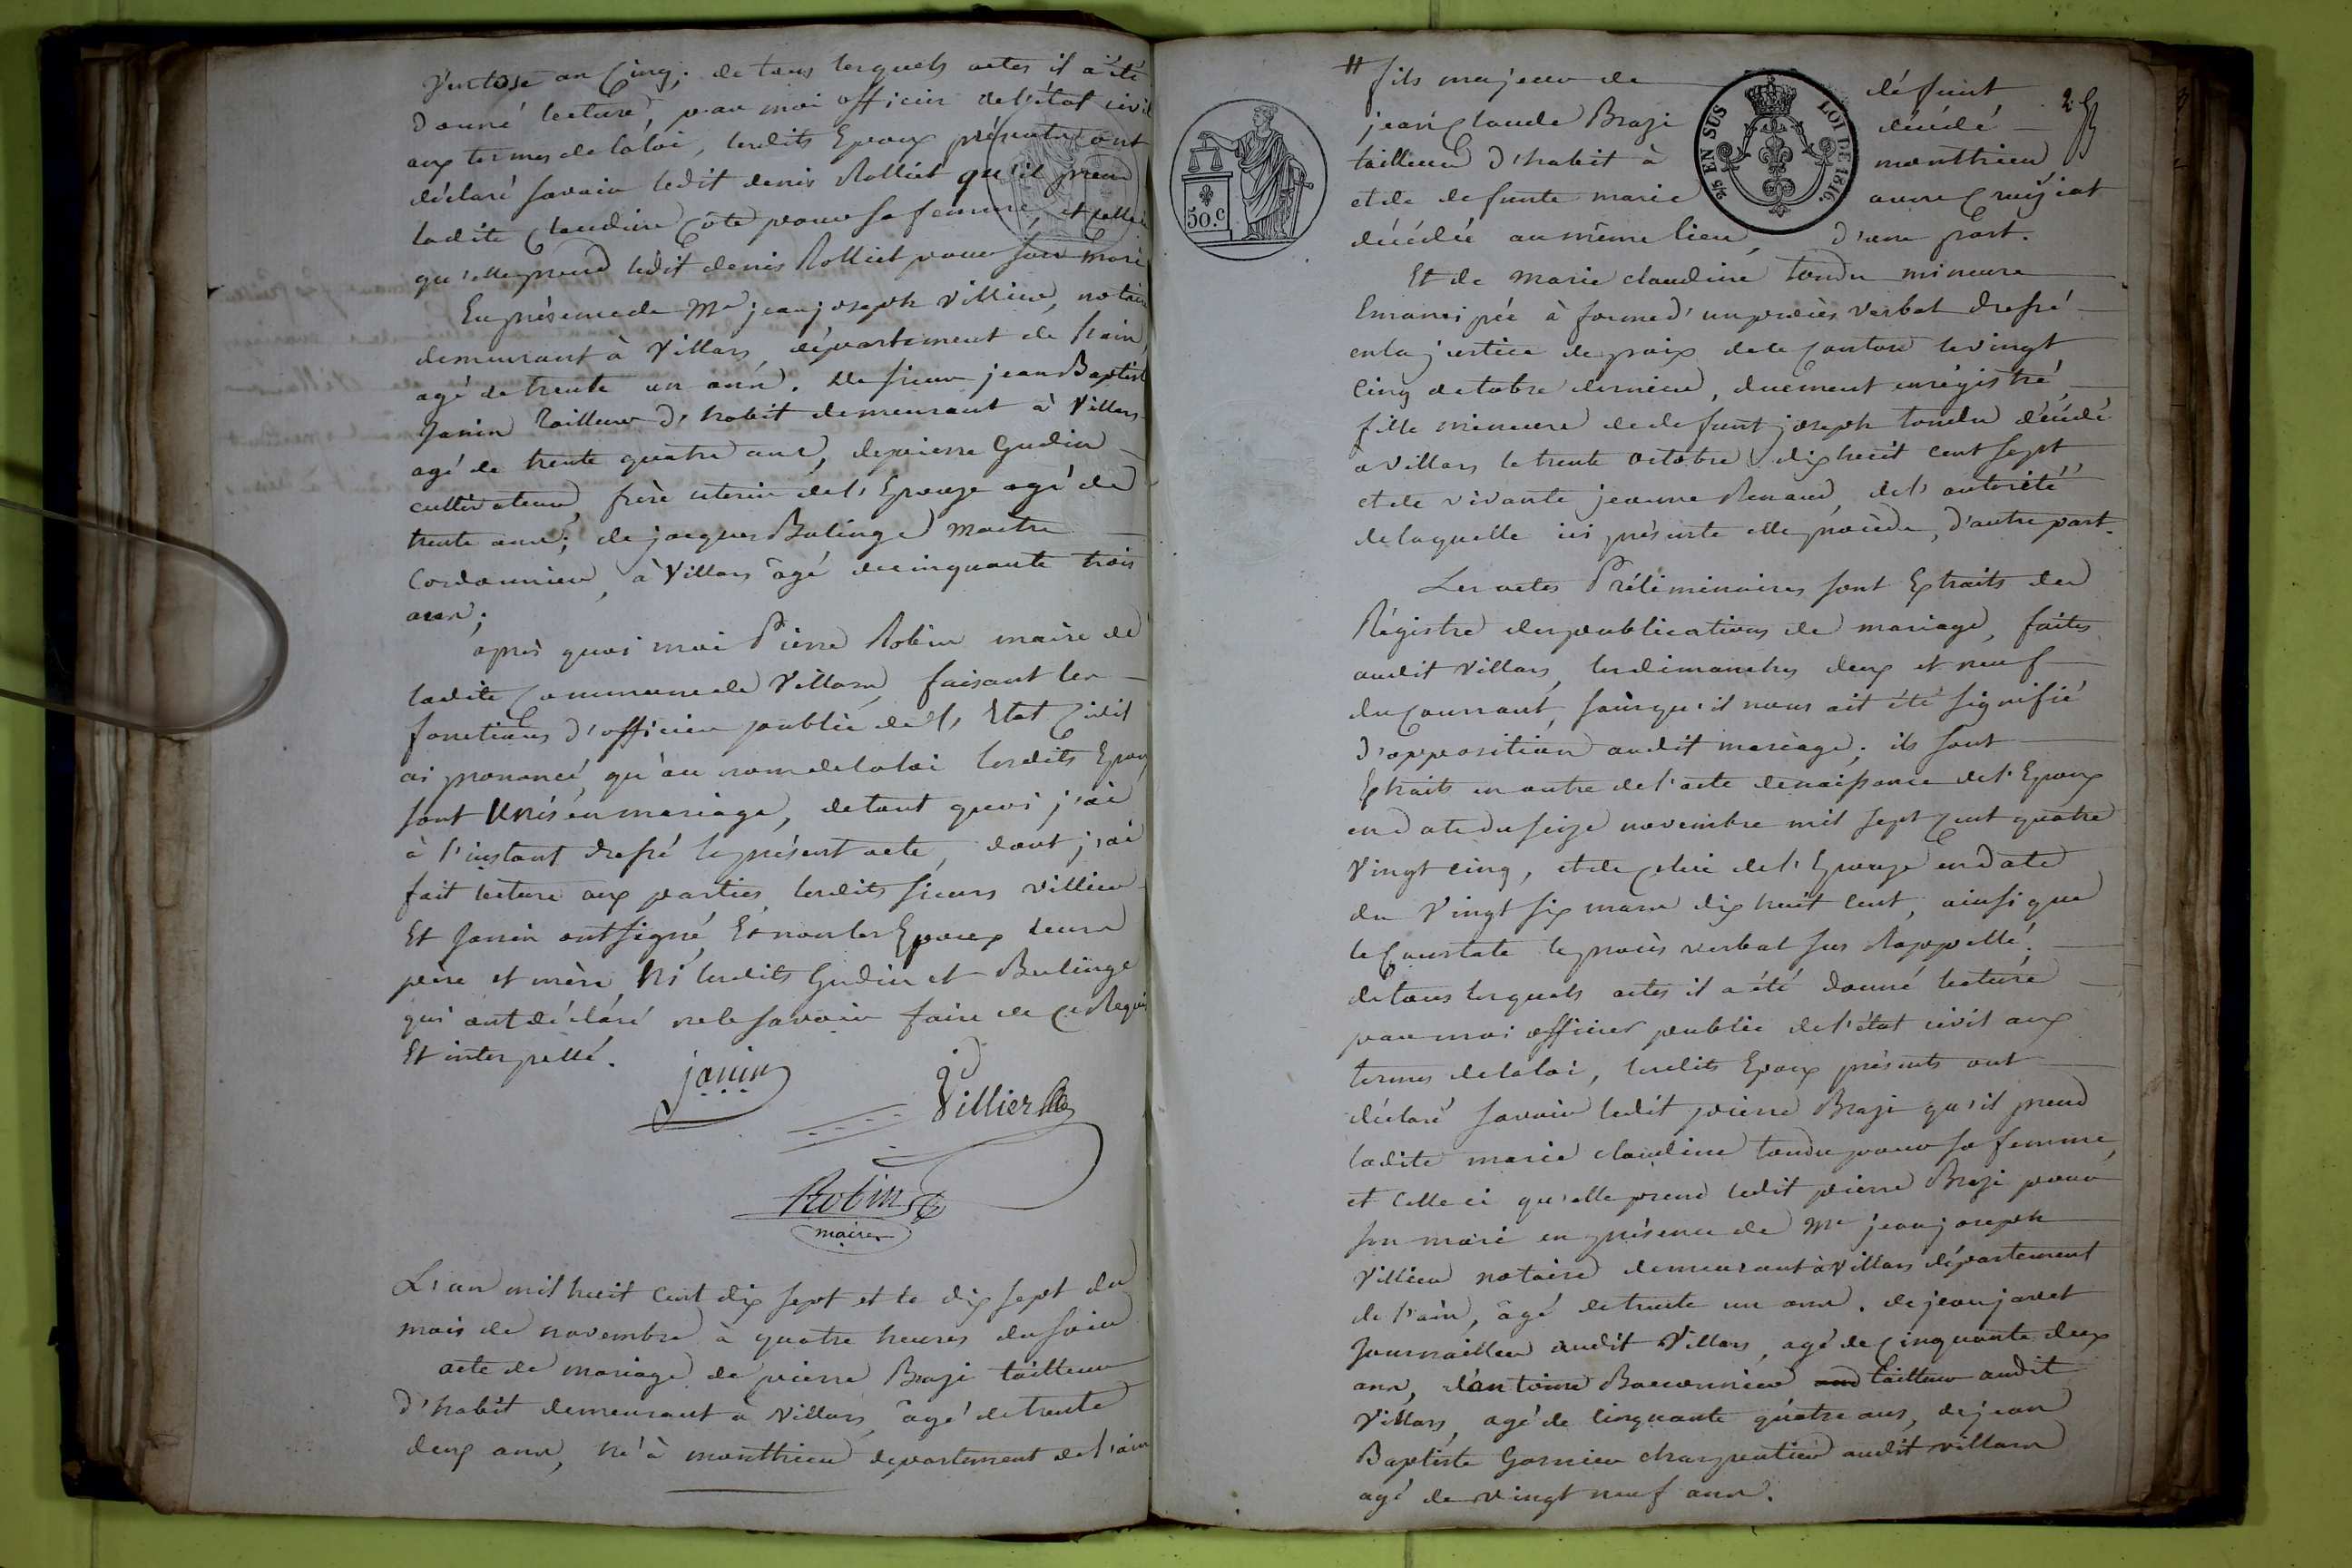 Ventose an Cinq; de tous lesquels actes il a été
donné lecture, par moi officier de l'état civil
aux termes de la loi, lesdits Epoux présents ont
déclaré savoir ledit denis Rolliet qu'il prend
ladite Claudine Cote pour sa femme, et celle ci
qu'elle prend ledit denis Rolliet pour son mari
En présence de Me jean joseph Villier, notaire
demeurant à Villars, département de l'ain,
agé de trente un ans. de sieur jean Baptiste
Janin Tailleur d'habit demeurant à Villars
agé de trente quatre ans, de pierre Gudin
cultivateur, frère uterin de l'Epouze agé de
trente ans; de jacques Bulinge Maitre
Cordonnier, à Villars âgé de cinquante trois
ans;
après quoi moi Pierre Robin maire de
ladite Commune de Villars, faisant les
fonctions d'officier public de l'Etat Civil
ai prononcé, qu'au nom de la loi lesdits Epoux
sont Unis en mariage, de tout quoi j'ai
à l'instant dressé le présent acte, dont j'ai
fait lecture aux parties, lesdits sieurs villier
Et Janin ont signé, Et non les Epoux leurs
père et mère, Ni lesdits Gudin et Bulinge
qui ont déclaré ne le savoir faire de ce Requis
Et interpellé.
janin
Villier
Robin
maire
L'an mil huit cent dix sept et le dix sept du
mois de novembre à quatre heures du soir
acte de mariage de pierre Brazi tailleur
d'habit demeurant à Villars, âgé de trente
deux ans, né à monthieu département de l'ain
# fils majeur de défunt
jean Claude Brazi décédé
tailleur d'habit à monthieu
et de defunte marie anne Cruÿiat
décédée au même lieu, d'une part.
2
50.C
2/5 EN SUS LOI DE 1816.
Et de Marie claudine tondu mineure
Emancipée à forme d'un procès verbal dressé
en la justice de paix de ce Canton le vingt
Cinq octobre dernier, duement enrégistré,
fille mineure de defunt joseph tondu décédé
a Villars le trente Octobre dix huit cent sept
et de vivante jeanne Renaud, de l'autorité
de laquelle ici présente elle procède, d'autre part.
Les actes Préliminaires sont Extraits des
Régistre des publications de mariage, faites
audit Villars, les dimanches deux et neuf
du Courrant, sans qu'il nous ait été signifié
d'opposition audit mariage; ils sont
Extraits en outre de l'acte de naissance de l'Epoux
en date du seize novembre mil sept Cent quatre
Vingt cinq, et de Celui de l'Epouze en date
du Vingt six mars dix huit Cent, ainsi que
le Constate le procès verbal sus Rappellé.
de tous lesquels actes il a été donné lecture
par moi officier public de l'état civil aux
termes de la loi, lesdits Epoux présents ont
déclaré savoir ledit pierre Brazi qu'il prend
ladite marie claudine tondu pour sa femme,
et Celle ci qu'elle prend ledit pierre Brazi pour
son mari en présence de Me jean joseph
Villier notaire demeurant à Villars département
de l'ain, âgé de trente un ans. de jean javet
Journaillier audit Villars, agé de Cinquante deux
ans, d'antoine Baconnier tailleur audit
Villars, agé de Cinquante quatre ans, de jean
Baptiste Garnier charpentier audit villars
agé de vingt neuf ans.